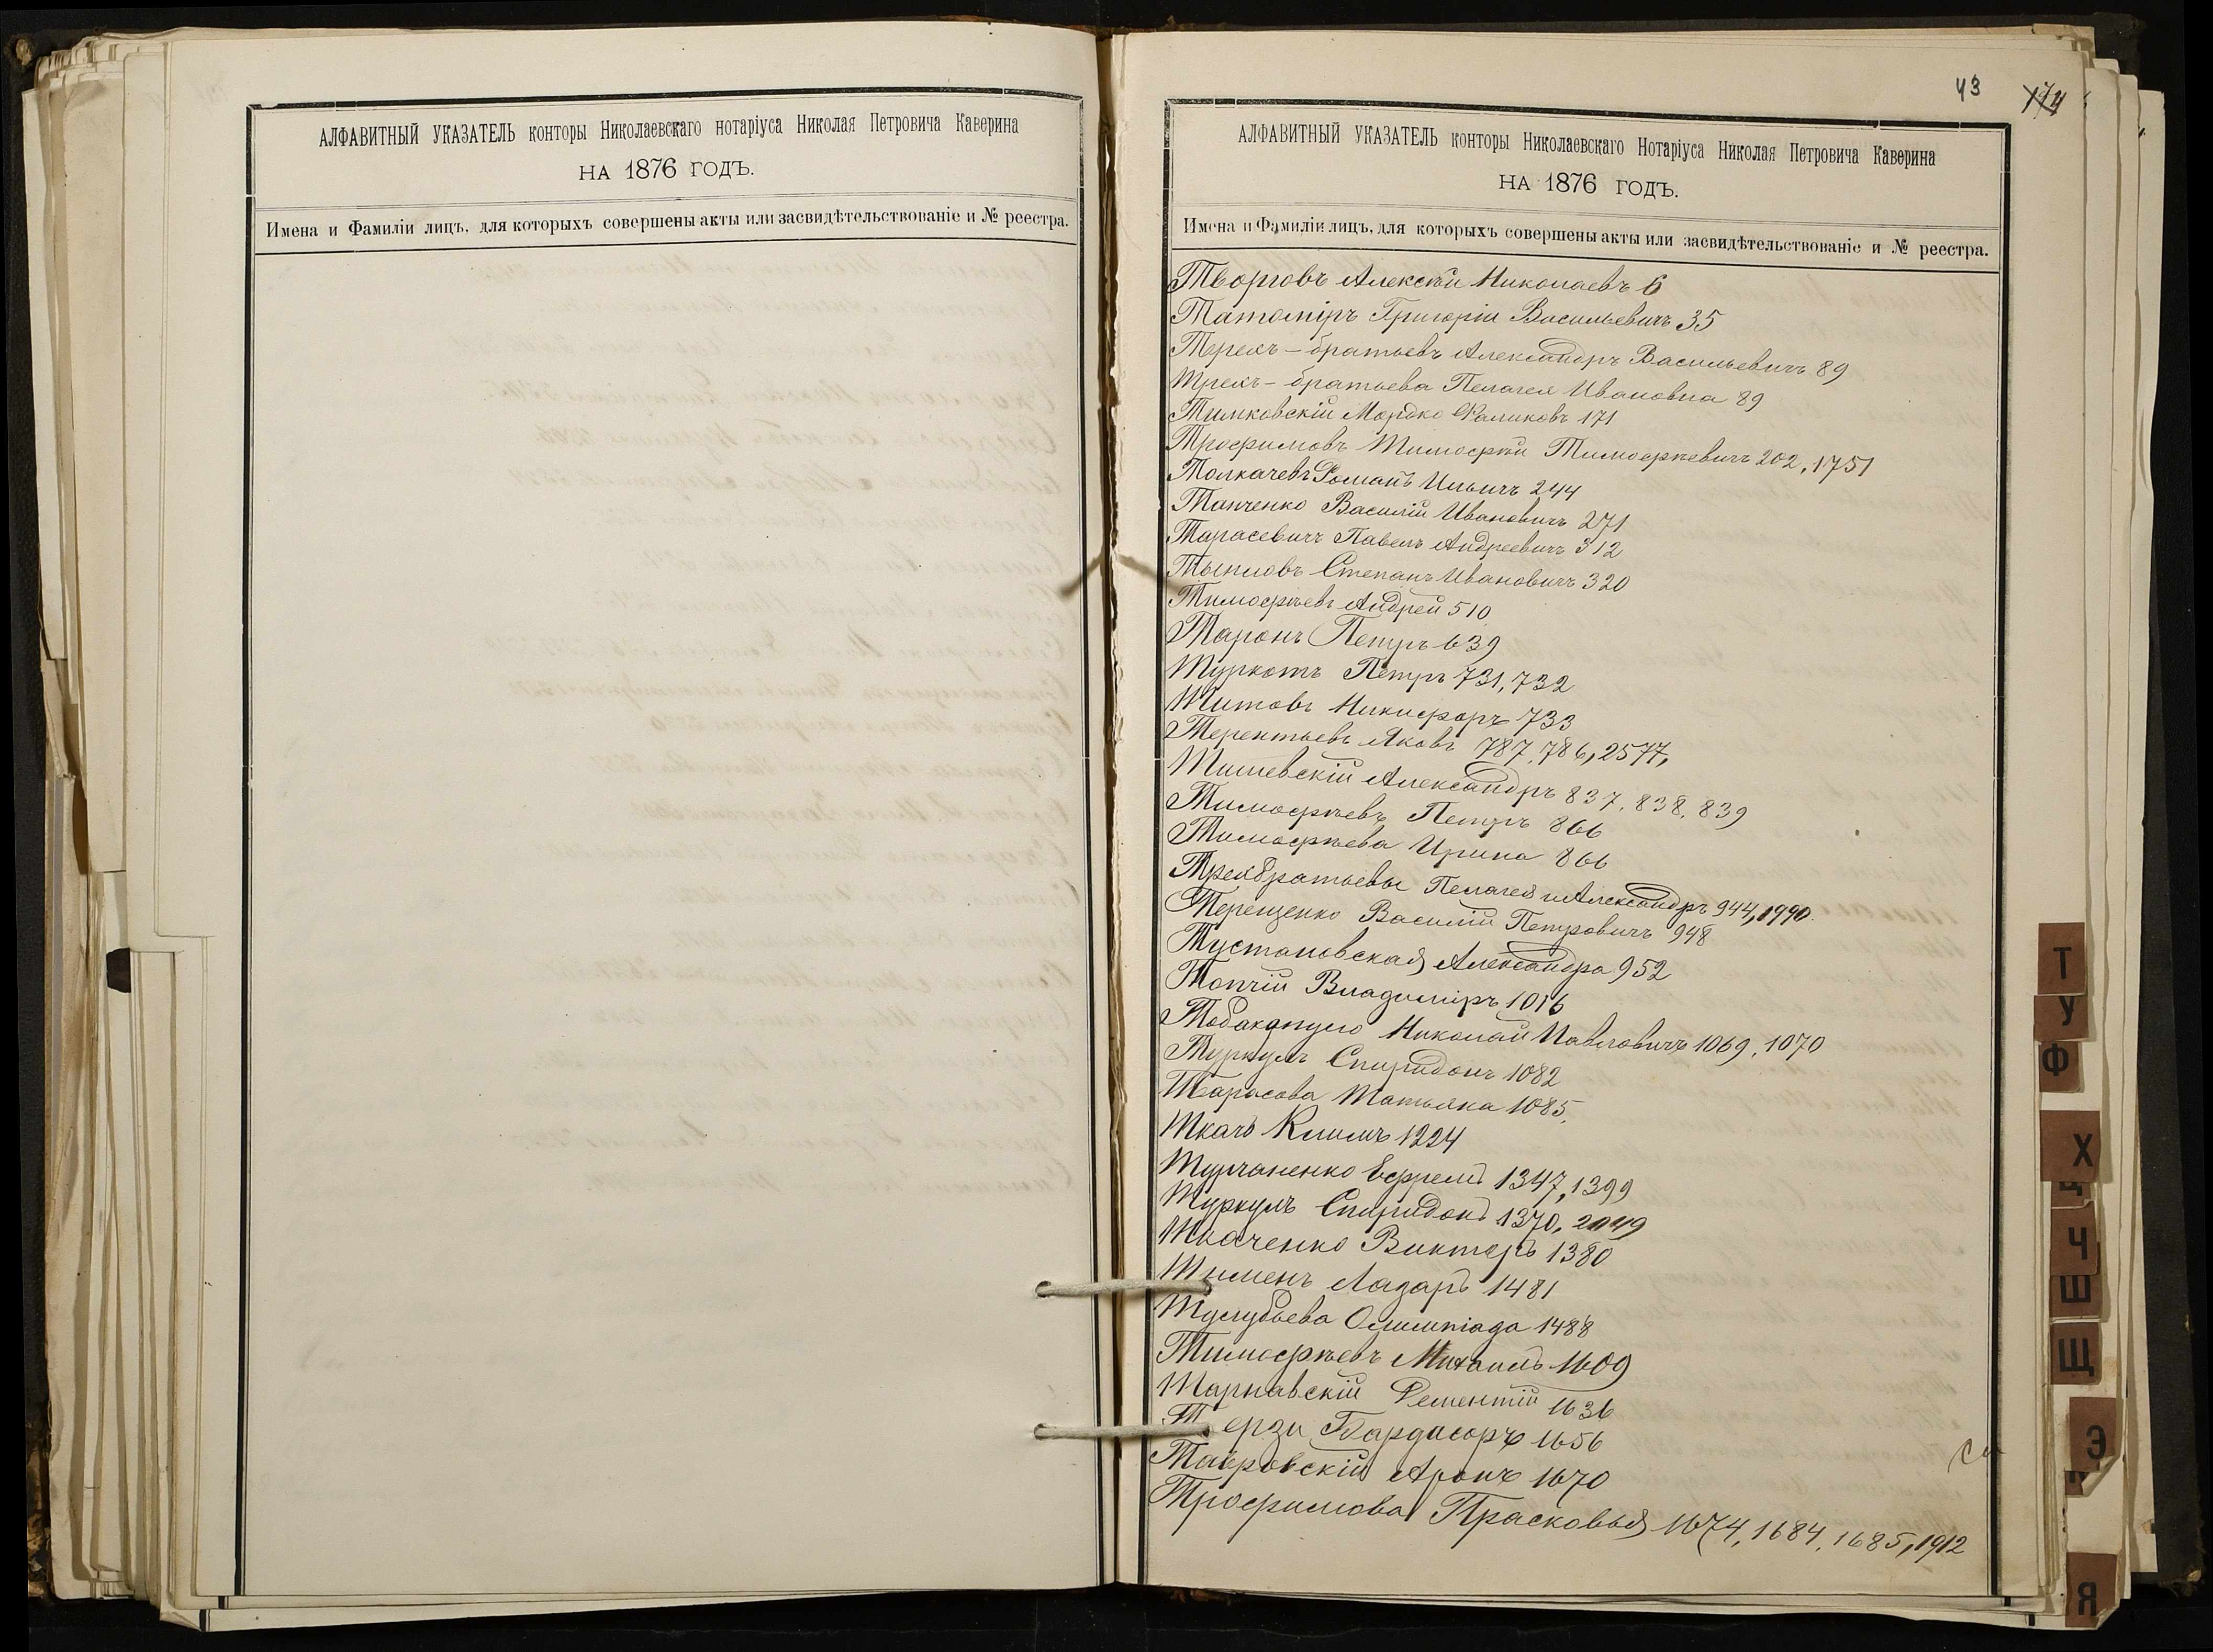 АЛФАВИТНЫЙ УКАЗАТЕЛЬ конторы Николаевскаго нотаріуса Николая Петровича Каверина
НА 1876 ГОДЪ.
Имена и Фамиліи лицъ, для которыхъ совершены акты или засвидѣтельствованіе и № реестра.
43
174
АЛФАВИТНЫЙ УКАЗАТЕЛЬ конторы Николаевскаго Нотаріуса Николая Петровича Каверина
НА 1876 ГОДЪ.
Имена и Фамиліи лицъ, для которыхъ совершены акты или засвидѣтельствованіе и № реестра.
Алексѣй Николаевъ 6
Татоміръ Григорій Васильевичъ 35
Терехъ-братьевъ Александръ Васильевичъ 89
Трехъ-братьева Пелагея Ивановна 89
Тимковскій Мордко 171
Трофимовъ Тимофѣй Тимофѣевичъ 202, 1751
Толкачевъ Романъ Ильичъ 244
Топченко Василій Ивановичъ 271
Тарасевичъ Павелъ Андреевичъ 312
Степанъ Ивановичъ 320
Тимофѣевъ Андрей 510
Таронъ Петръ 639
Туркотъ Петръ 731, 732
Титовъ Никифоръ 733
Терентьевъ Яковъ 787, 786, 2577,
Тишевскій Александръ 837, 838, 839
Тимофѣевъ Петръ 866
Тимофѣева Ирина 866
Трехбратьевы Пелагея и Александръ 944, 1990.
Терещенко Василій Петровичъ 948
Тустановская Александра 952
Топчій Владиміръ 1016
Николай Павловичъ 1069, 1070
Туркулъ Спиридонъ 1082
Тарасова Татьяна 1085.
Ткачъ Климъ 1224
Турчаненко Ефремъ 1347, 1399
Туркулъ Спиридонъ 1370, 2049
Ткаченко Викторъ 1380
Тименъ Лазарь 1481
Тулубьева Олимпіада 1488
Тимофѣевъ Михаилъ 1609
Тарнавскій Дементій 1636
Терзи 1656
Тавровскій Аронъ 1670
Трофимова Прасковья 1674, 1684, 1685, 1912
Т
У
Ф
Х
Ц
Ч
Ш
Щ
Э
Я